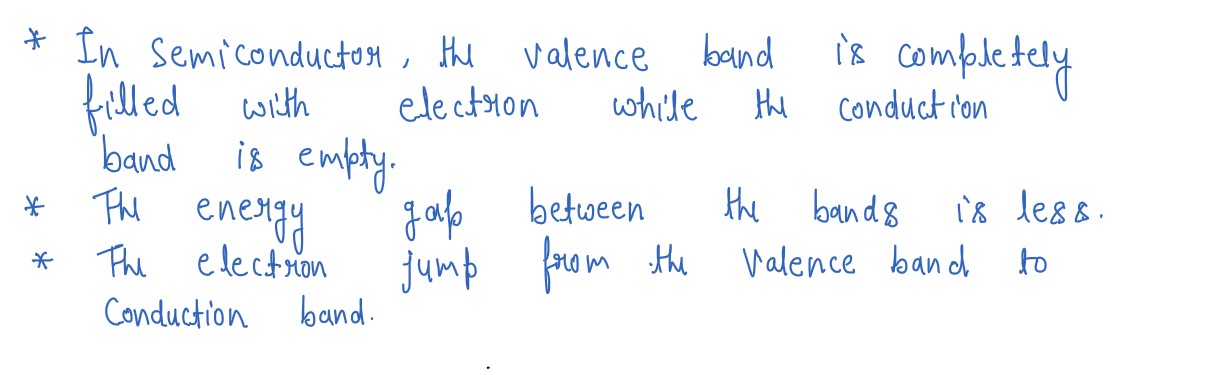 * In Semiconductor, the valence band is completely
filled with electron while the conduction
band is empty.
* The energy gap between the bands is less.
* The electron jump from the Valence band to
Conduction band.